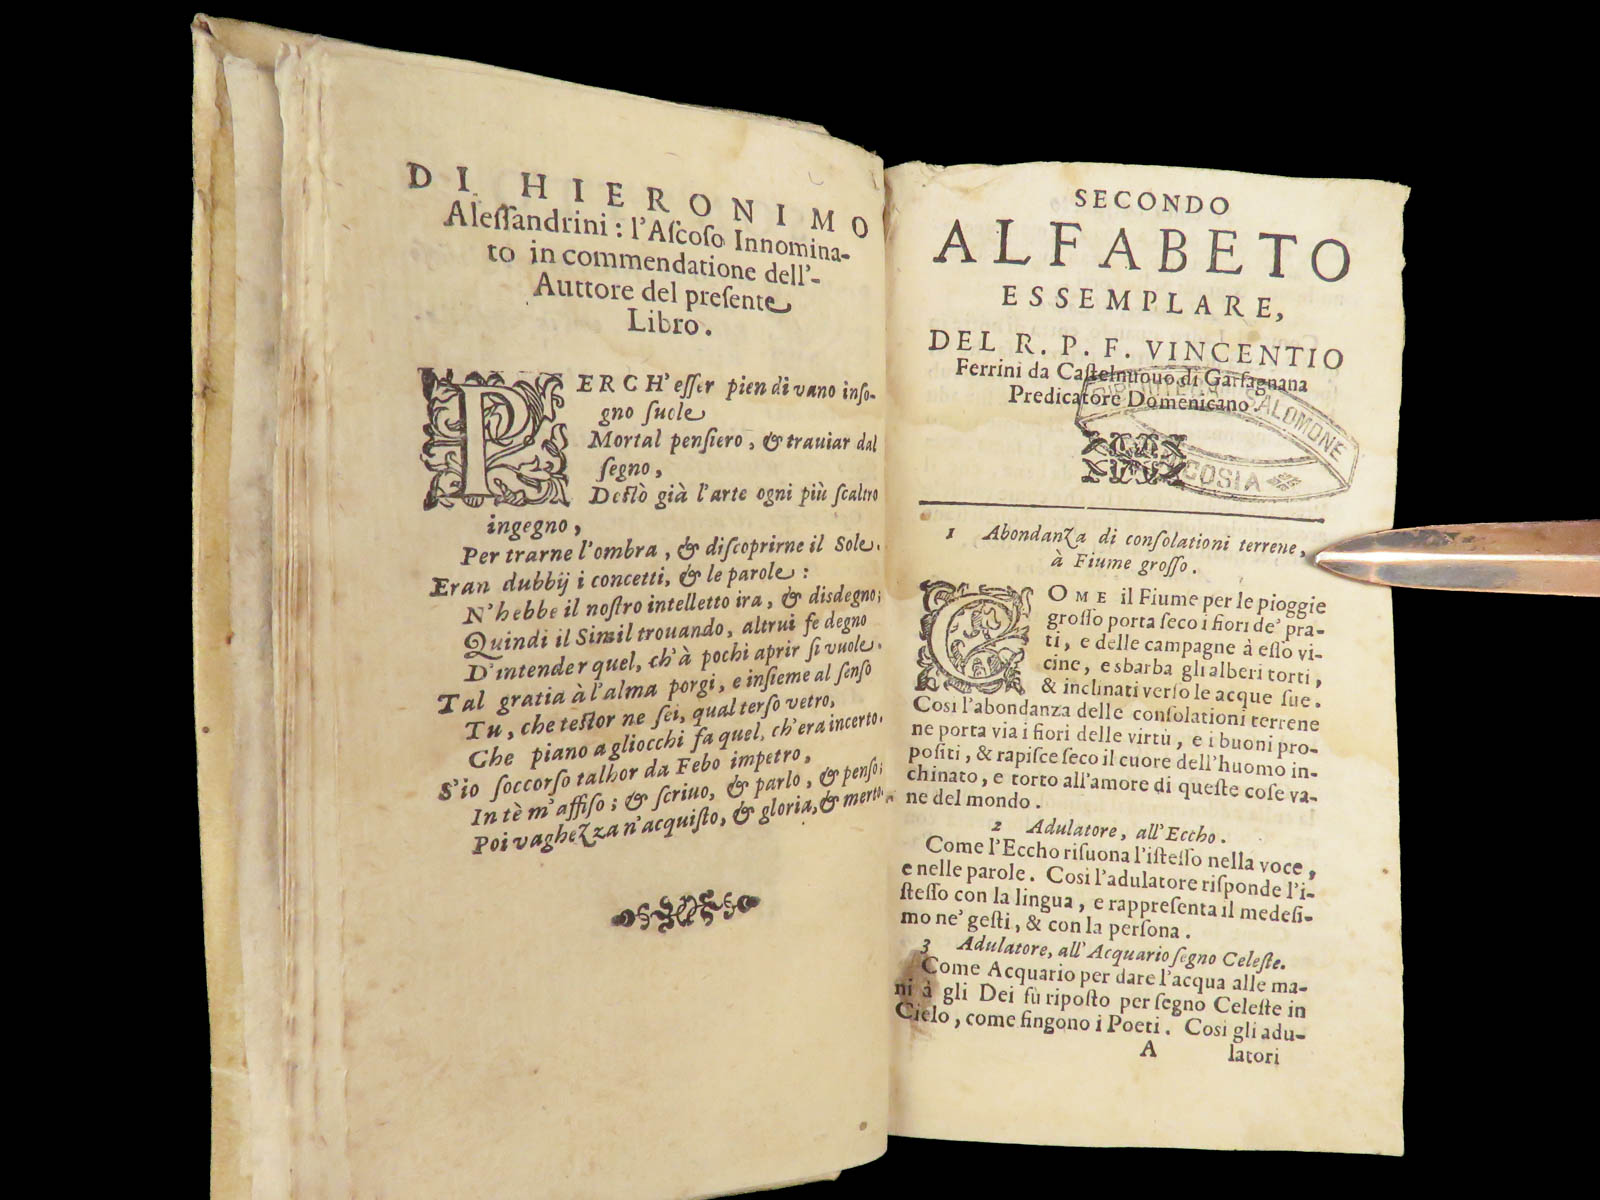 DI HIERONIMO
Aleſſandrini : l'Aſcoſo Innomina-
to in commendatione dell'-
Auttore del preſente
Libro.
PERCH' eſſer pien di vano inſo-
gno ſuole
Mortal penſiero, & trauiar dal
ſegno,
Deſtò già l'arte ogni più ſcaltro
ingegno,
Per trarne l'ombra, & diſcoprirne il Sole.
Eran dubbij i concetti, & le parole :
N'hebbe il noſtro intelletto ira, & disdegno;
Quindi il Simil trouando, altrui fe degno
D'intender quel, ch'à pochi aprir ſi vuole.
Tal gratia à l'alma porgi, e inſieme al ſenſo
Tu, che teſtor ne ſei, qual terſo vetro,
Che piano a gliocchi fa quel, ch'era incerto.
S'io ſoccorſo talhor da Febo impetro,
In tè m'affiſo; & ſcriuo, & parlo, & penſo;
Poi vaghezza n'acquiſto, & gloria, & merto.
SECONDO
ALFABETO
ESSEMPLARE,
DEL R. P. F. VINCENTIO
Ferrini da Caſtelnuouo di Garfagnana
Predicatore Domenicano.
BIBLIOTECA SALOMONE
NICOSIA
1 Abondanza di conſolationi terrene,
à Fiume groſſo.
COME il Fiume per le pioggie
groſſo porta ſeco i fiori de' pra-
ti, e delle campagne à eſſo vi-
cine, e sbarba gli alberi torti,
& inclinati verſo le acque ſue.
Coſi l'abondanza delle conſolationi terrene
ne porta via i fiori delle virtù, e i buoni pro-
poſiti, & rapiſce ſeco il cuore dell'huomo in-
chinato, e torto all'amore di queſte coſe va-
ne del mondo.
2 Adulatore, all'Eccho.
Come l'Eccho riſuona l'iſteſſo nella voce,
e nelle parole. Coſi l'adulatore riſponde l'i-
ſteſſo con la lingua, e rappreſenta il medeſi-
mo ne' geſti, & con la perſona.
3 Adulatore, all'Acquario ſegno Celeſte.
Come Acquario per dare l'acqua alle ma-
ni à gli Dei fù ripoſto per ſegno Celeſte in
Cielo, come fingono i Poeti. Coſi gli adu-
A latori